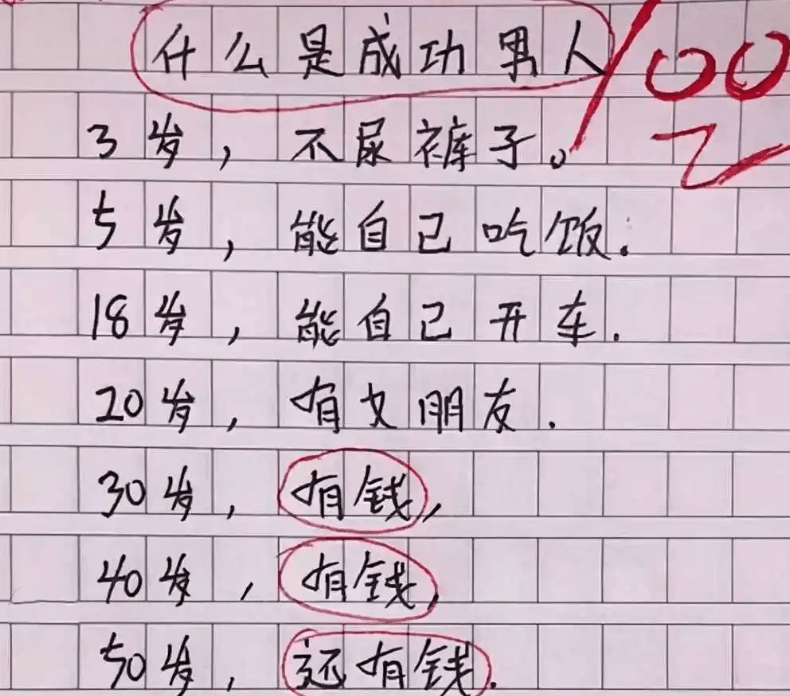 什么是成功男人
100
3岁，不尿裤子。
5岁，能自己吃饭.
18岁，能自己开车.
20岁，有女朋友.
30岁，有钱，
40岁，有钱，
50岁，还有钱.